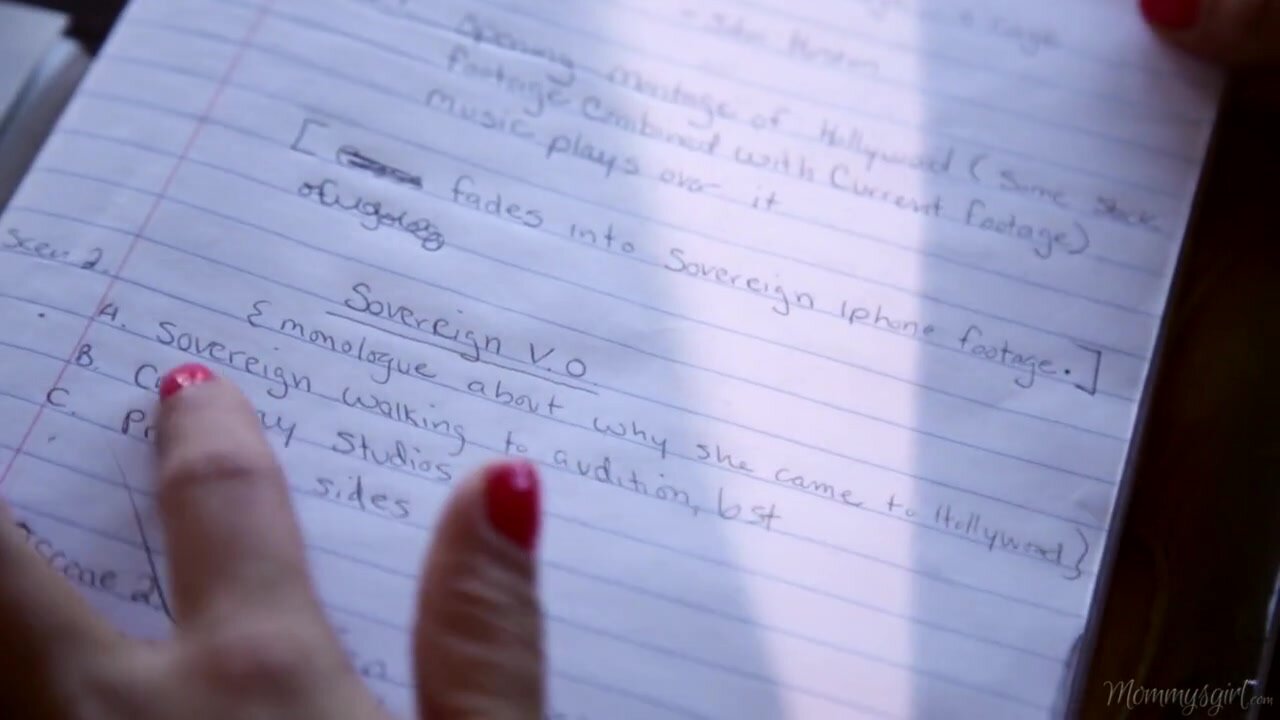 Opening montage of Hollywood (some stock
footage combined with current footage)
music plays over it
[ fades into Sovereign Iphone footage.]
Scen 2.
Sovereign V.O.
{monologue about why she came to Hollywood}
A. Sovereign walking to audition, lost
B. Studios
C. sides
Scene 2
Mommysgirl.com